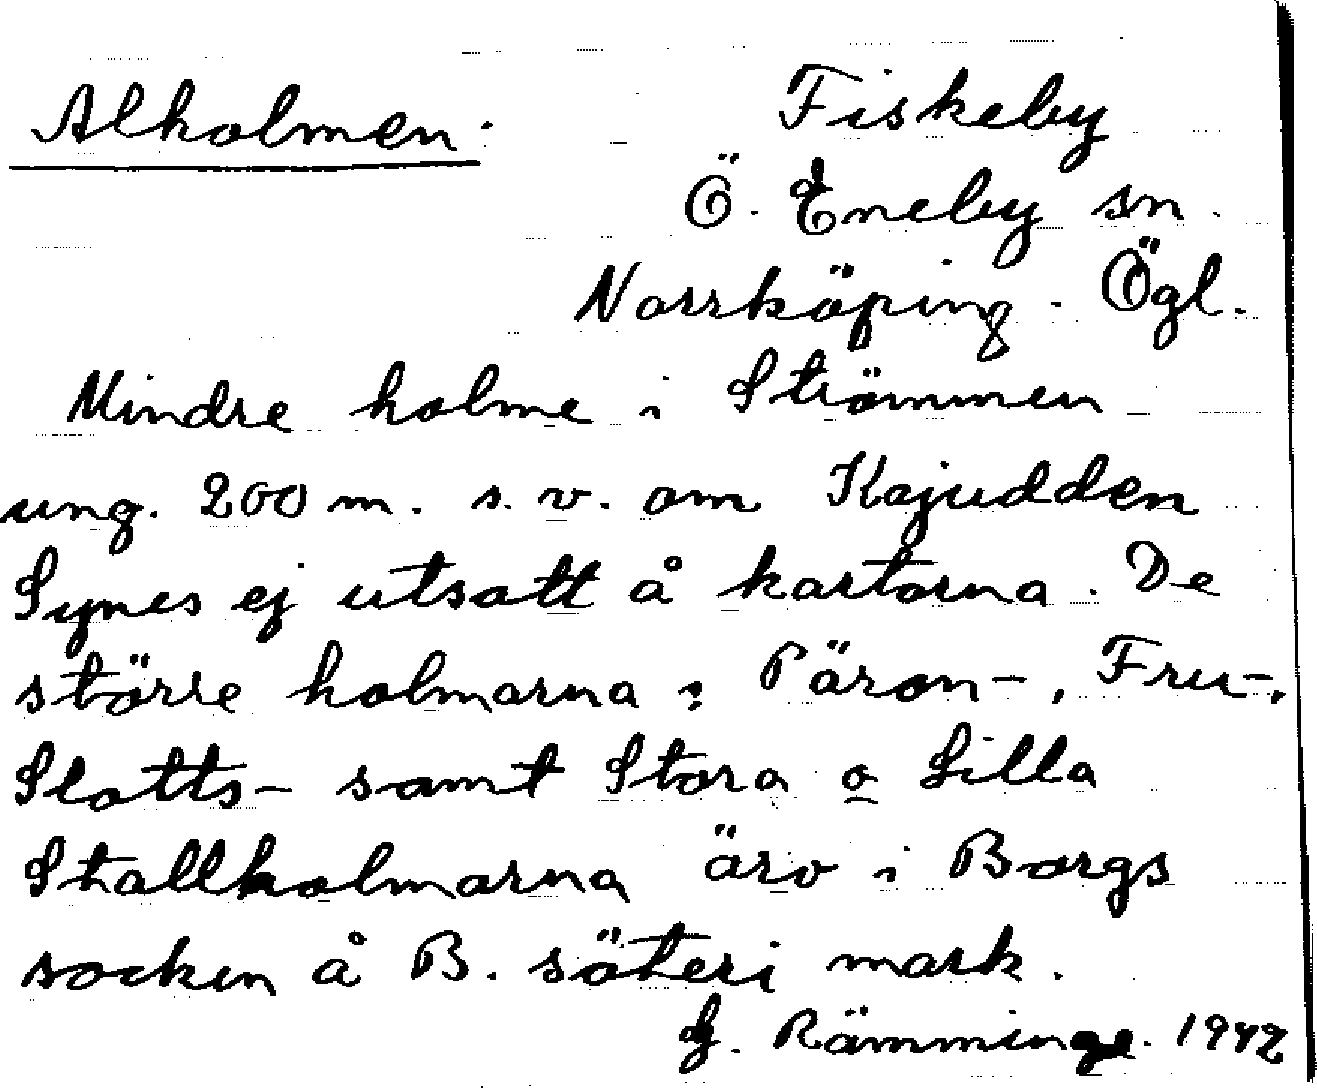 Alholmen.
Fiskeby
Ö. Eneby sn.
Norrköping. Ögl.
Mindre holme i Strömmen
ung. 200 m. s. v. om Kajudden
Synes ej utsatt å kartorna. De
större holmarna: Päron-, Fru-,
Slotts- samt Stora o Lilla
Stallholmarna äro i Borgs
socken å B. säteri mark.
G. Rämminge. 1942